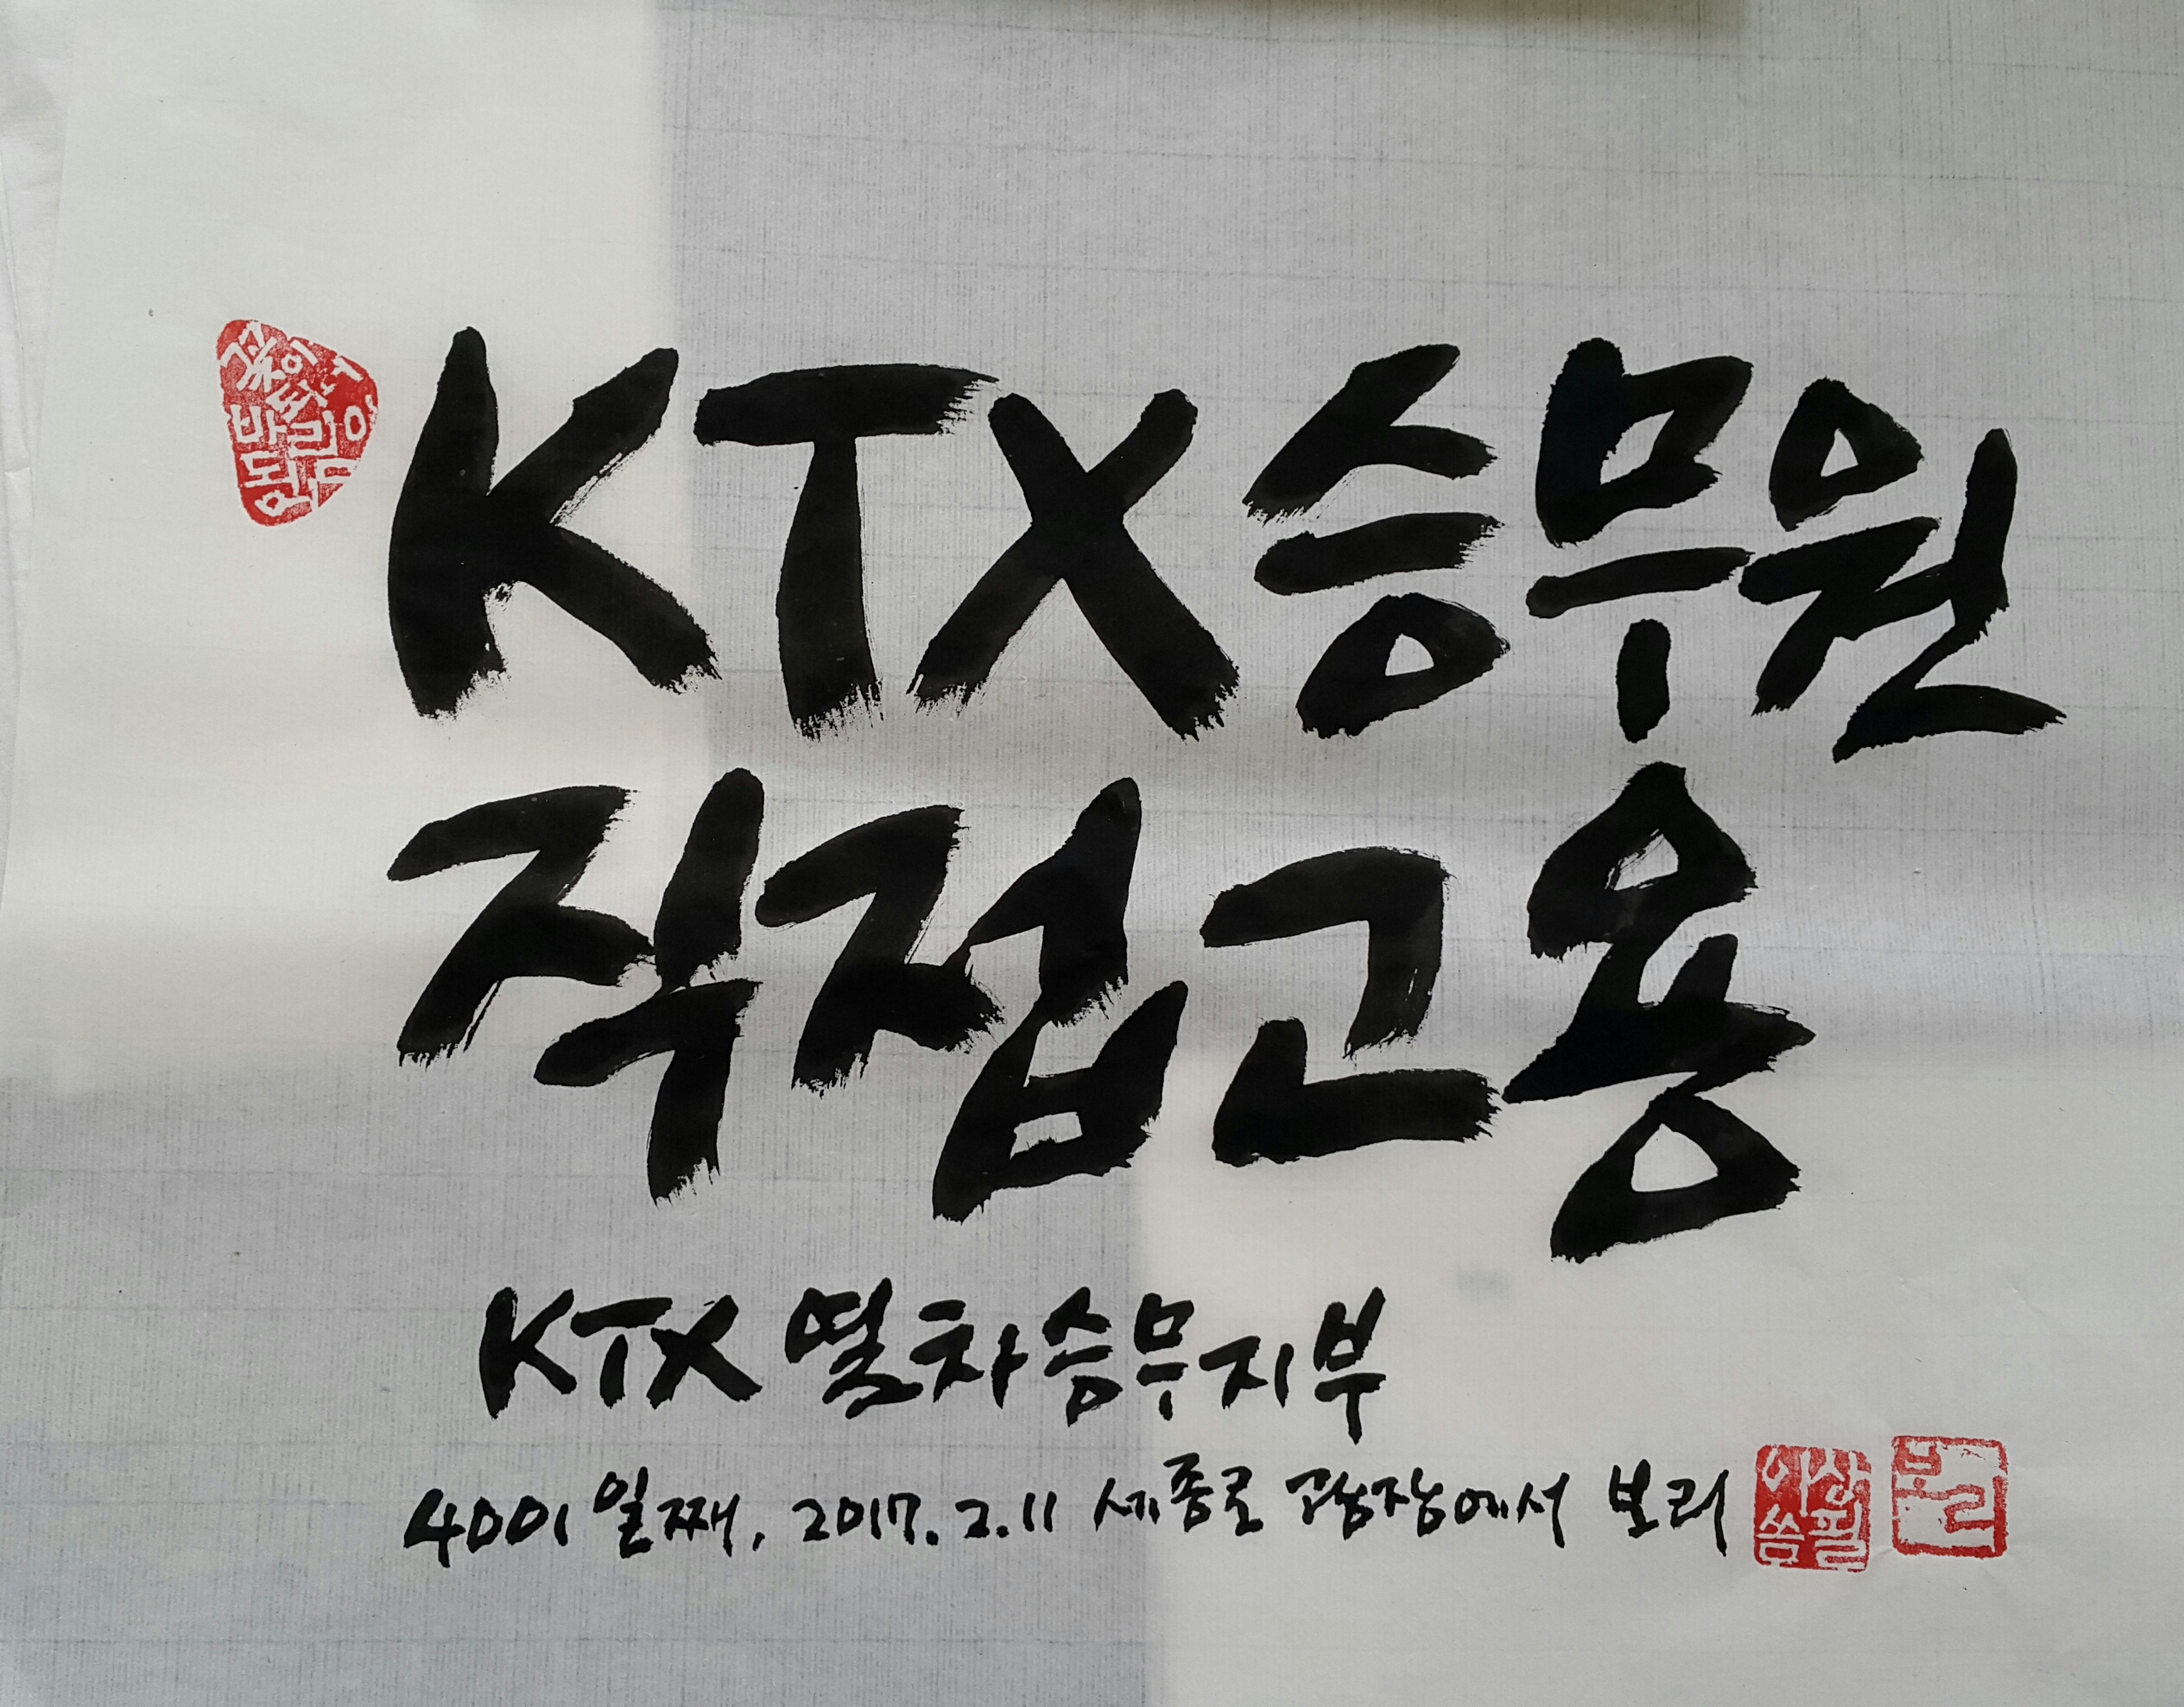 KTX승무원
직접고용
KTX 열차승무지부
4001일째, 2017. 2. 11 세종로 광장에서 보리
이상필
씀
보리